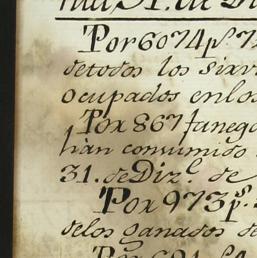 31. de Di
Por 6074 p.^s 7
de todos los sirv
ocupados en los
Por 867 fanega
han consumido
31. de Diz.^e de
Por 973 p.^s
de los ganados de
Por 691